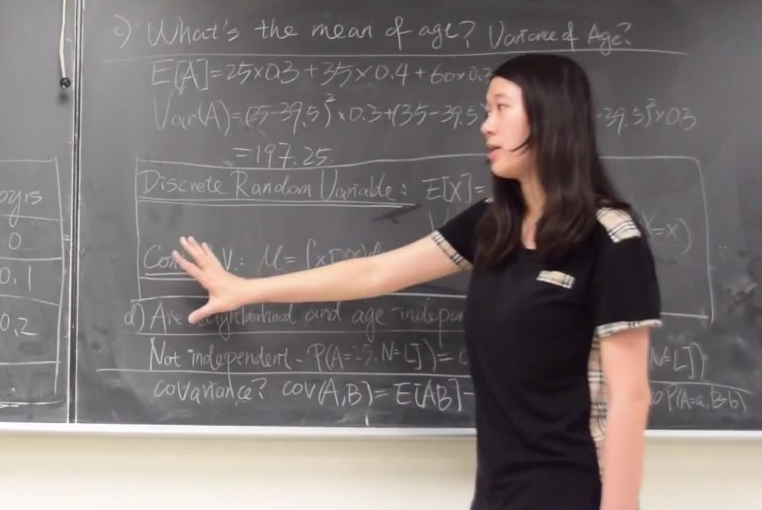 c) What's the mean of age? Variance of Age?
E[A]=25×0.3+35×0.4+60×0.3
Var(A)=(25-39.5)²×0.3+(35-39.5 -39.5)²×0.3
=197.25
Discrete Random Variable: E[X]=
=x)
V.: M=
d) Are neighborhood and age indepe
Not independent. P(A=25, N=LJ)= N=LJ)
covariance? cov(A,B)=E[AB]- P(A=a,B=b)
0yrs
0
0.1
0.2